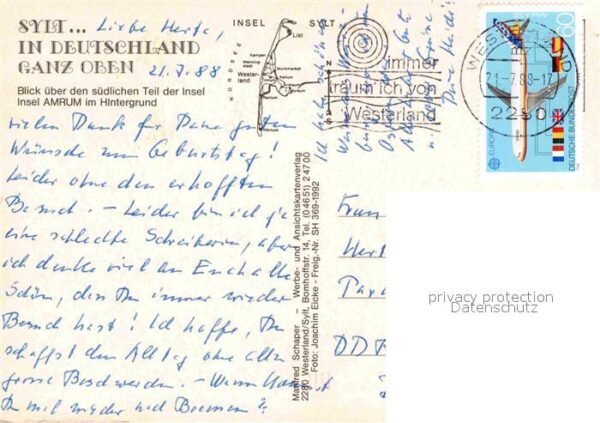 SYLT...
IN DEUTSCHLAND
GANZ OBEN
Blick über den südlichen Teil der Insel
Insel AMRUM im Hintergrund
Liebe Herta,
21.7.88
vielen Dank für Deine guten
Wünsche zum Geburtstag!
Leider ohne den erhofften
Besuch. – Leider bin ich ja
eine schlechte Schreiberin, aber
ich denke viel an Euch alle
Schön, den Du immer wieder
Besuch hast! Ich hoffe, Du
schaffst den Alltag ohne allzu
grosse Beschwerden. – Wann kommst
Du mal wieder nach Bremen?
INSEL SYLT
NORDSEE
List
Kampen
Westerland
N
S
Manfred Schaper – Werbe- und Ansichtskartenverlag
2280 Westerland/Sylt, Bomhoffstr. 14, Tel. (0 46 51) 2 47 00
Foto: Joachim Eicke - Freig.-Nr. SH 369-1992
Ich habe
immer
träum ich von
Westerland
WESTERLAND
21.-7.88-17
2280
60
EUROPA
DEUTSCHE BUNDESPOST
Frau
Hert
DDR
privacy protection
Datenschutz